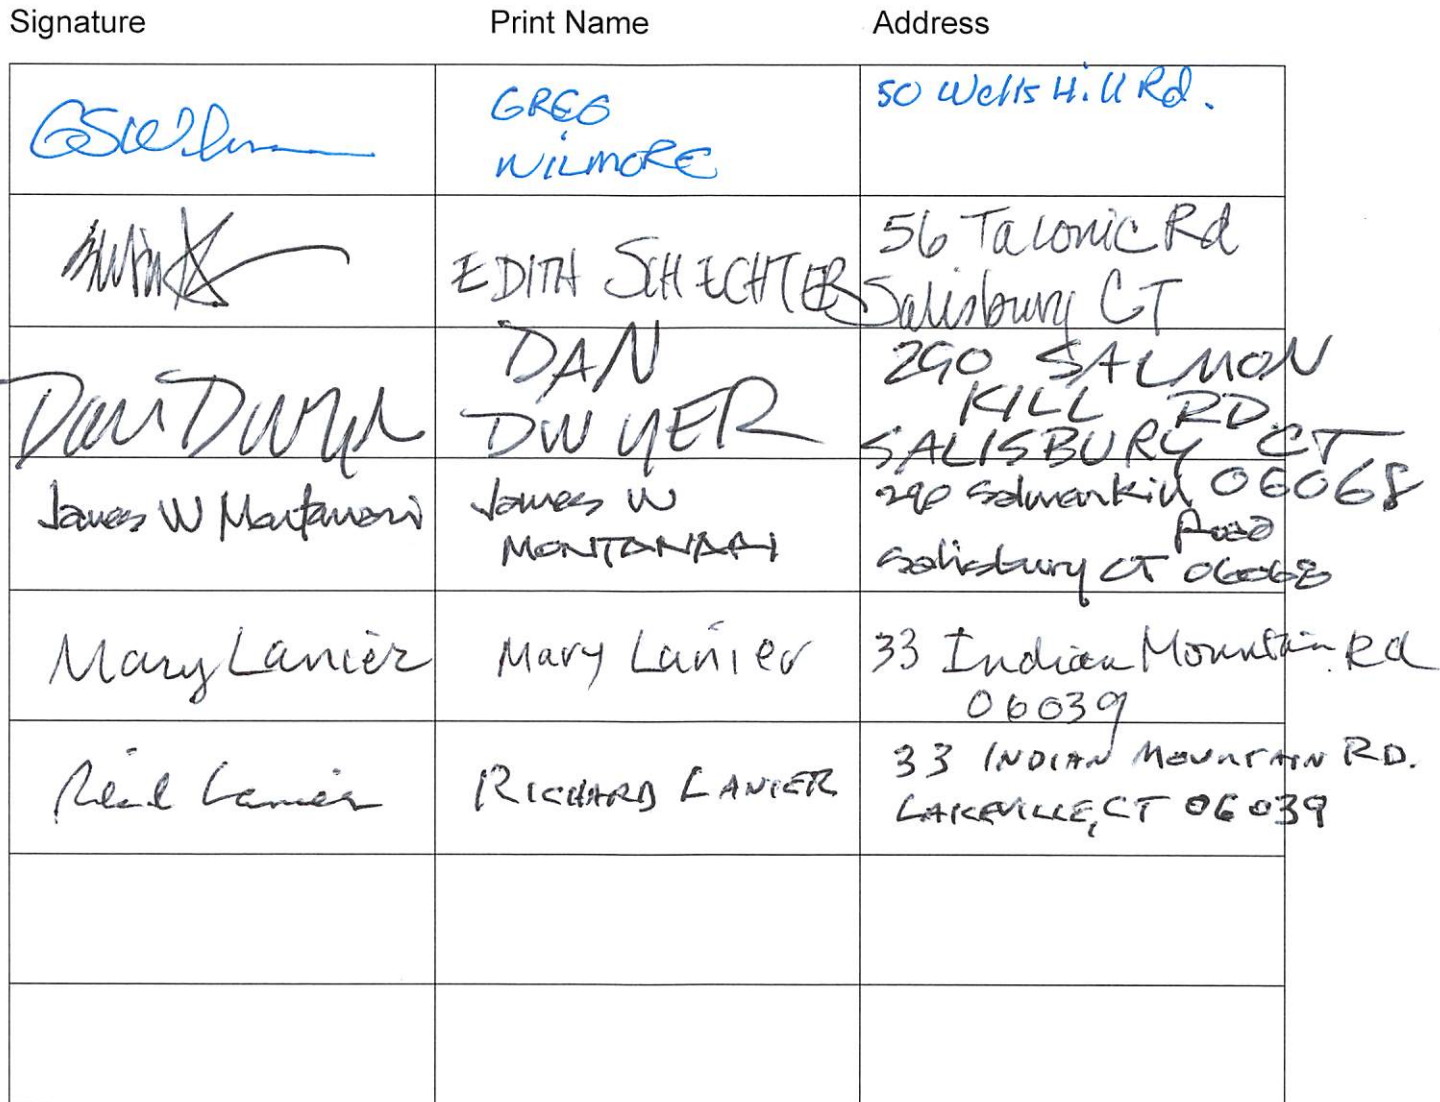 Signature Print Name Address
GREG
WILMORE
50 Wells Hill Rd.
EDITH SCHECHTER
56 Taconic Rd
Salisbury CT
Dan Dwyer
DAN
DWYER
290 SALMON
KILL RD
SALISBURY CT
06068
James W Montanari
James W
MONTANARI
290 Salmon Kill
Road
Salisbury CT 06068
Mary Lanier
Mary Lanier
33 Indian Mountain Rd
06039
Lanier
RICHARD LANIER
33 INDIAN MOUNTAIN RD.
LAKEVILLE, CT 06039